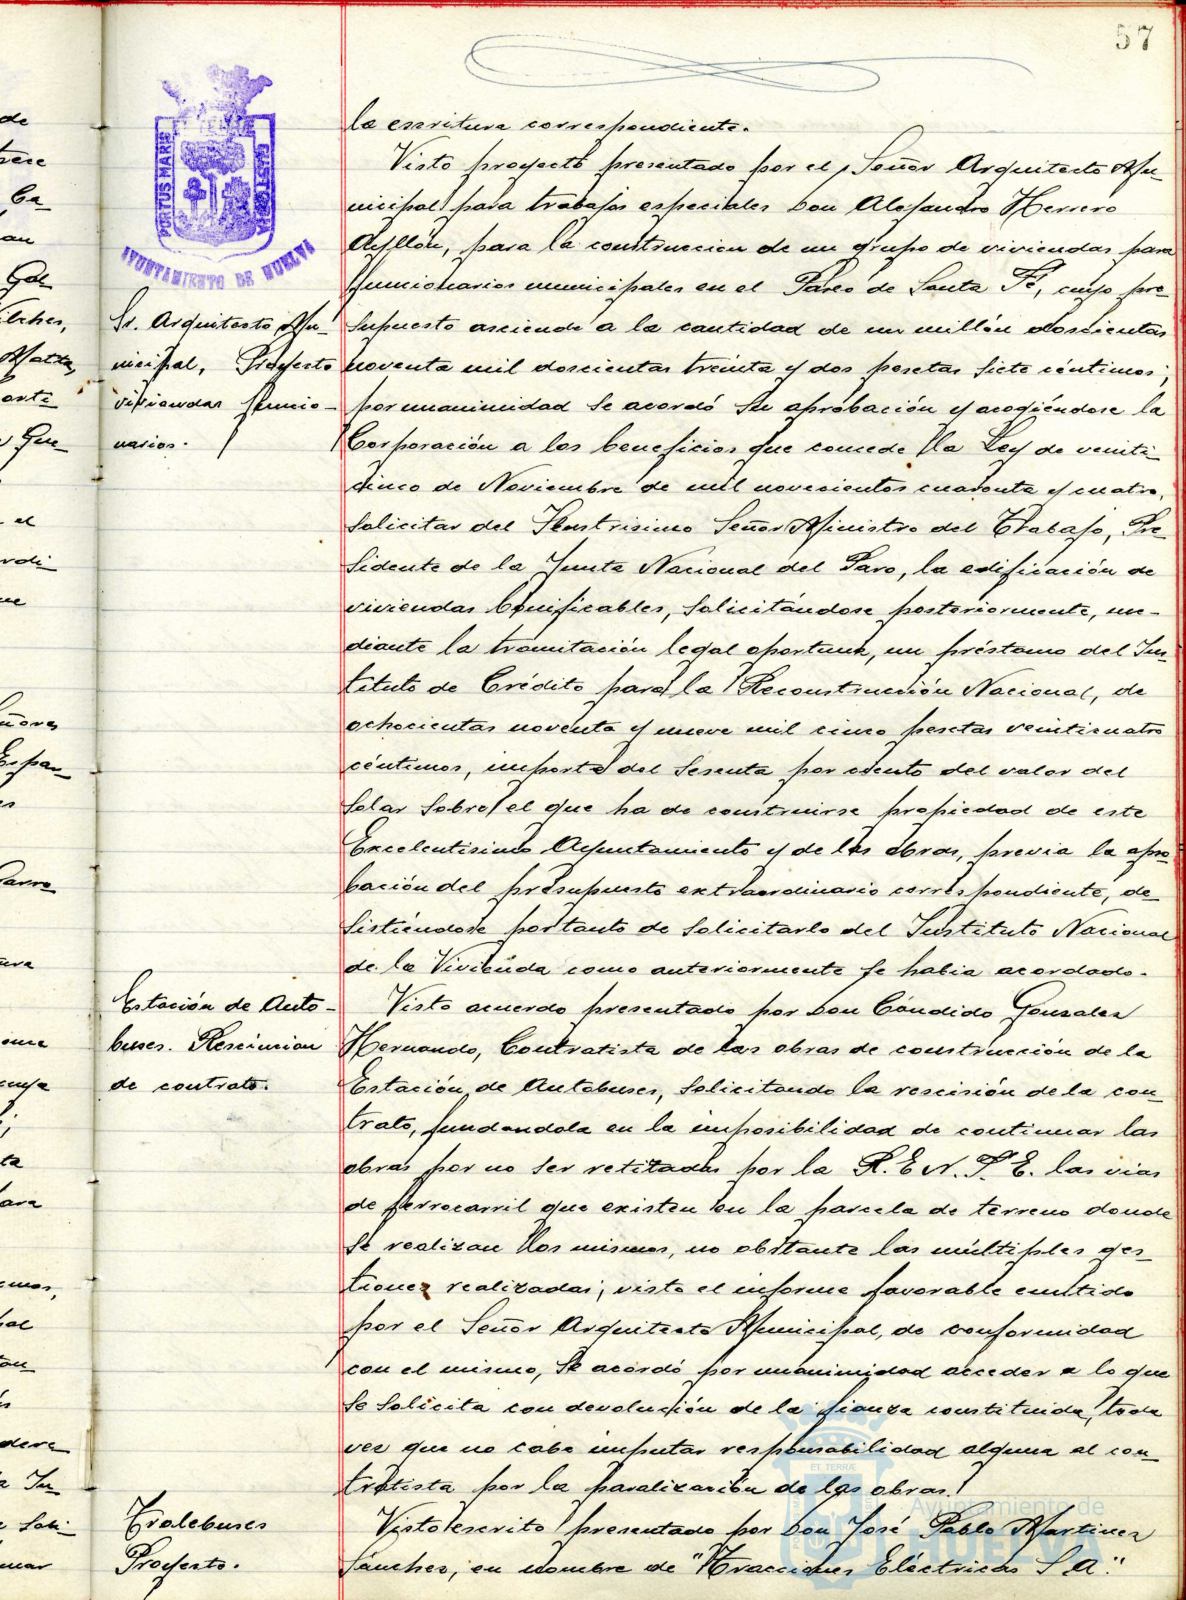 57
PORTUS MARIS
ET TERRÆ
CUSTODIA
AYUNTAMIENTO DE HUELVA
la escritura correspondiente.
Visto proyecto presentado por el Señor Arquitecto Mu-
nicipal para trabajos especiales Don Alejandro Herrero
Ayllón, para la construccion de un grupo de viviendas para
funcionarios municipales en el Paseo de Santa Fé, cuyo pre-
supuesto asciende a la cantidad de un millón doscientas
noventa mil doscientas treinta y dos pesetas siete céntimos;
por unanimidad se acordó su aprobación y acogiéndose la
Corporación a los beneficios que concede la Ley de veinti-
cinco de Noviembre de mil novecientos cuarenta y cuatro,
solicitar del Ilustrisimo Señor Ministro del Trabajo, Pre-
sidente de la Junta Nacional del Paro, la edificación de
viviendas bonificables, solicitándose posteriormente, me-
diante la tramitación legal oportuna, un préstamo del Ins-
tituto de Crédito para la Reconstrucción Nacional, de
ochocientas noventa y nueve mil cinco pesetas veinticuatro
céntimos, importe del sesenta por ciento del valor del
solar sobre el que ha de construirse propiedad de este
Excelentisimo Ayuntamiento y de las obras, previa la apro-
bación del presupuesto extraordinario correspondiente, de-
sistiéndose por tanto de solicitarlo del Instituto Nacional
de la Vivienda como anteriormente se habia acordado.
Sr. Arquitecto Mu-
nicipal, Proyecto
viviendas funcio-
narios.
Visto acuerdo presentado por Don Cándido Gonzalez
Hernando, Contratista de las obras de construcción de la
Estación de Autobuses, solicitando la rescisión de la con-
trato, fundandola en la imposibilidad de continuar las
obras por no ser retitadas por la R.E.N.F.E. las vias
de ferrocarril que existen en la parcela de terreno donde
se realizan los mismos, no obstante las múltiples ges-
tiones realizadas; visto el informe favorable emitido
por el Señor Arquitecto Municipal, de conformidad
con el mismo, se acordó por unanimidad acceder a lo que
se solicita con devolución de la fianza constituida, toda
vez que no cabe imputar responsabilidad alguna al con-
tratista por la paralización de las obras.
Estación de Auto-
buses. Rescincion
de contrato.
Visto escrito presentado por Don José Pablo Martinez
Sánchez, en nombre de "Tracciones Eléctricas S A".
Trolebuses
Proyecto.
ET TERRÆ
Ayuntamiento de
HUELVA